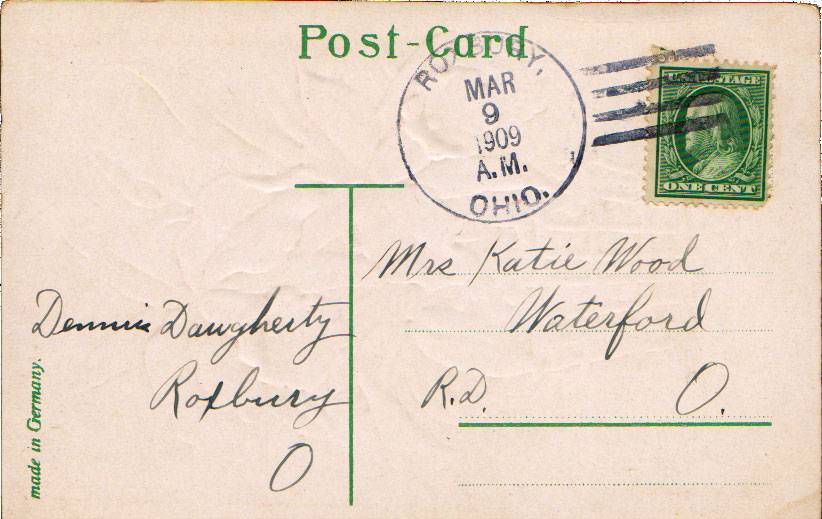 Post-Card
ROXBURY,
MAR
9
1909
A.M.
OHIO.
U.S. POSTAGE
ONE CENT
Mrs Katie Wood
Waterford
R.D. O.
Dennis Dawgherty
Roxbury
O
made in Germany.